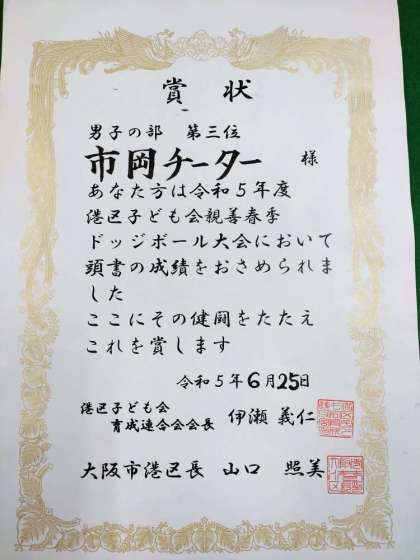 賞状
男子の部 第三位
市岡チーター 様
あなた方は令和5年度
港区子ども会親善春季
ドッジボール大会において
頭書の成績をおさめられま
した
ここにその健闘をたたえ
これを賞します
令和5年6月25日
港区子ども会
育成連合会会長 伊瀬 義仁
大阪市港区長 山口 照美